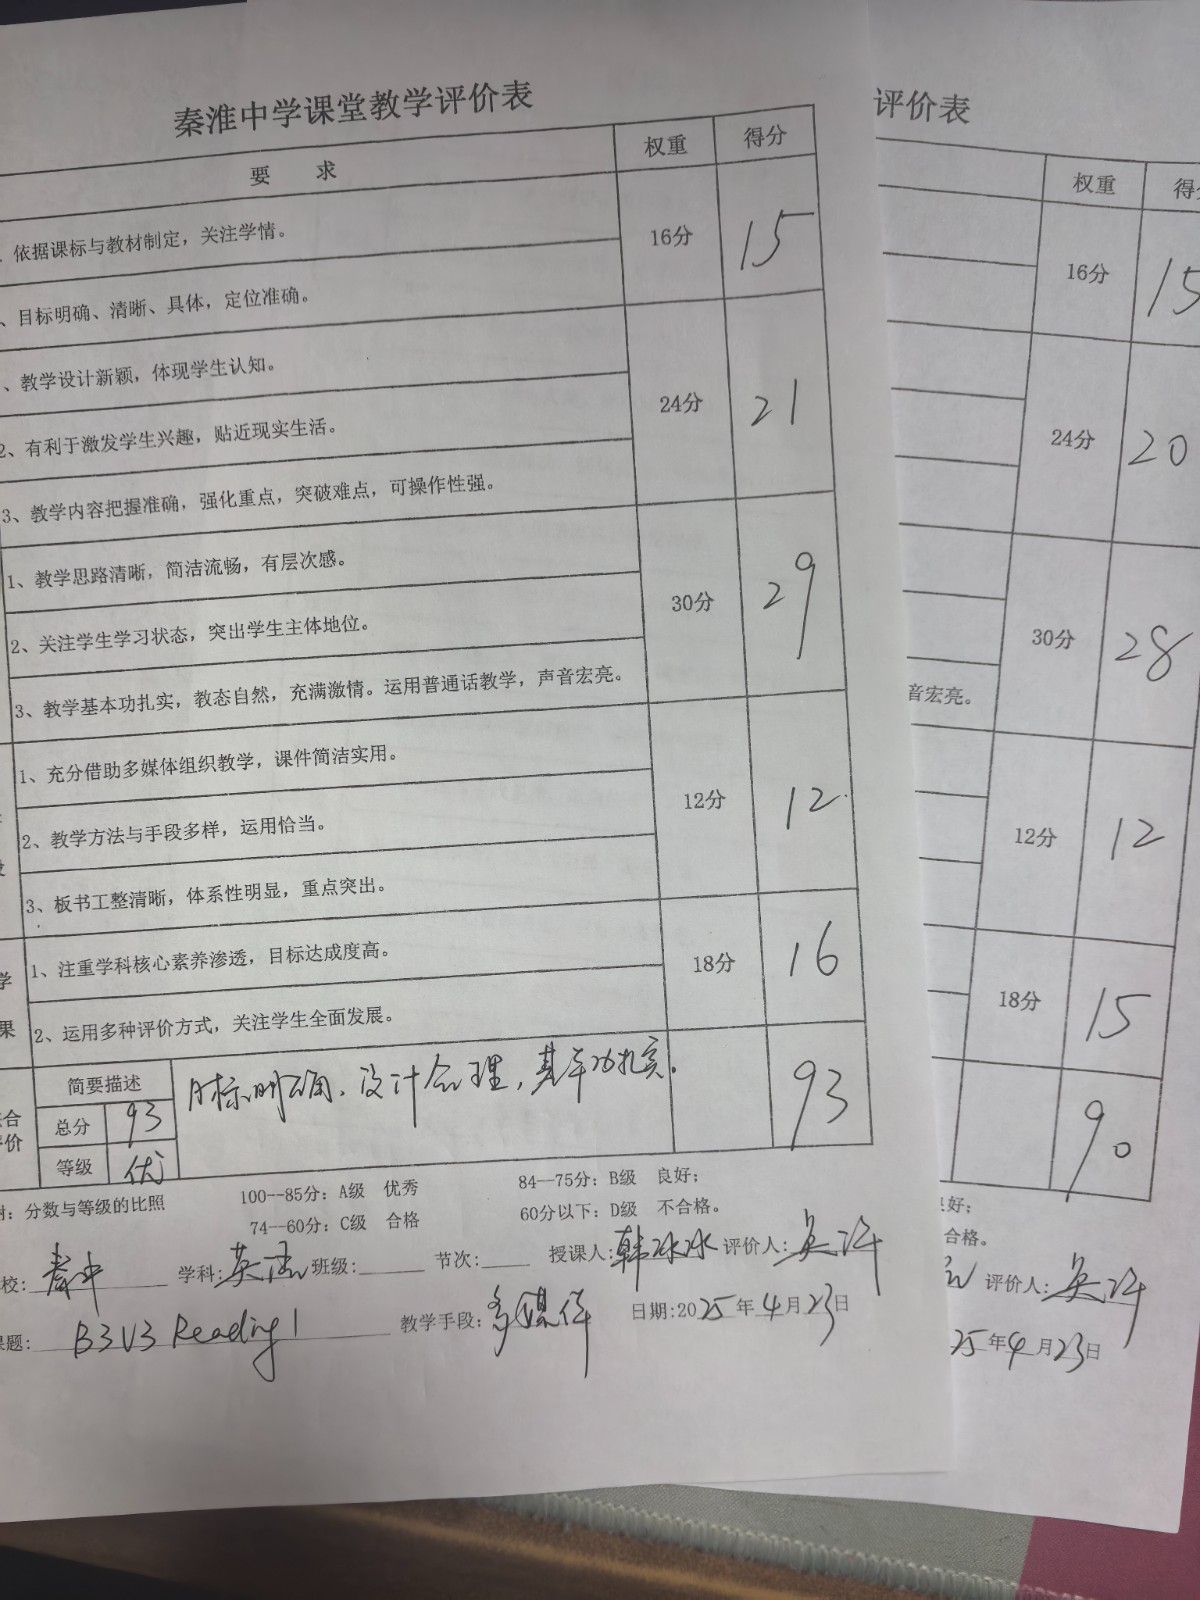 秦淮中学课堂教学评价表
要 求 权重 得分
、依据课标与教材制定，关注学情。
16分 15
、目标明确、清晰、具体，定位准确。
、教学设计新颖，体现学生认知。
2、有利于激发学生兴趣，贴近现实生活。
24分 21
3、教学内容把握准确，强化重点，突破难点，可操作性强。
1、教学思路清晰，简洁流畅，有层次感。
2、关注学生学习状态，突出学生主体地位。
30分 29
3、教学基本功扎实，教态自然，充满激情。运用普通话教学，声音宏亮。
1、充分借助多媒体组织教学，课件简洁实用。
2、教学方法与手段多样，运用恰当。
12分 12
3、板书工整清晰，体系性明显，重点突出。
学 1、注重学科核心素养渗透，目标达成度高。
18分 16
果 2、运用多种评价方式，关注学生全面发展。
简要描述 目标明确、设计合理，基本功扎实。
合
价
总分 93
93
等级 优
附：分数与等级的比照 100--85分：A级 优秀 84--75分：B级 良好；
74--60分：C级 合格 60分以下：D级 不合格。
校：秦中 学科：英语 班级： 节次： 授课人：韩冰冰 评价人：吴许
课题：B3U3 Reading1 教学手段：多媒体 日期：2025年4月23日
评价表
权重 得分
16分 15
24分 20
30分 28
音宏亮。
12分 12
18分 15
90
良好；
合格。
评价人：吴许
25年4月23日